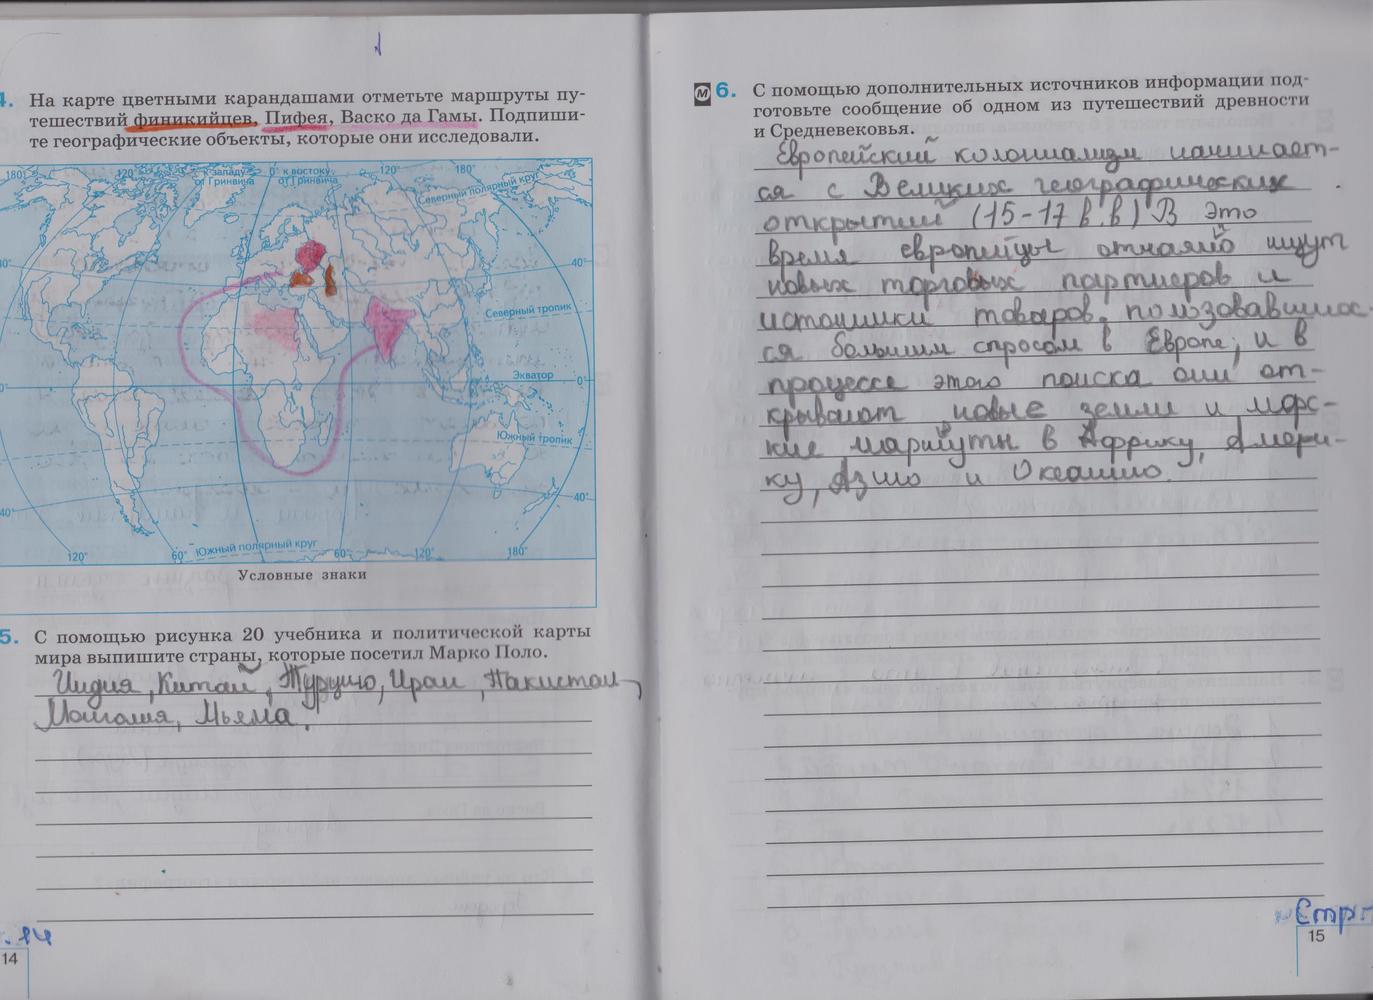 4. На карте цветными карандашами отметьте маршруты пу-
тешествий финикийцев, Пифея, Васко да Гамы. Подпиши-
те географические объекты, которые они исследовали.
180° 120° к западу от Гринвича 0° к востоку от Гринвича 120° 180°
Северный полярный круг
40° 40°
Северный тропик
Экватор
0° 0°
Южный тропик
40° 40°
Южный полярный круг
120° 60° 60° 120° 180°
Условные знаки
5. С помощью рисунка 20 учебника и политической карты
мира выпишите страны, которые посетил Марко Поло.
Индия, Китай, Турцию, Иран, Пакистан,
Монголия, Мьяма.
с. 14
14
М 6. С помощью дополнительных источников информации под-
готовьте сообщение об одном из путешествий древности
и Средневековья.
Европейский колониализм начинает-
ся с Великих географических
открытий (15-17 в.в) В это
время европейцы отчаянно ищут
новых торговых партнеров и
источники товаров, пользовавшихс-
ся большим спросом в Европе, и в
процессе этого поиска они от-
крывают новые земли и морс-
кие маршруты в Африку, Амери-
ку, Азию и Океанию.
Стр
15